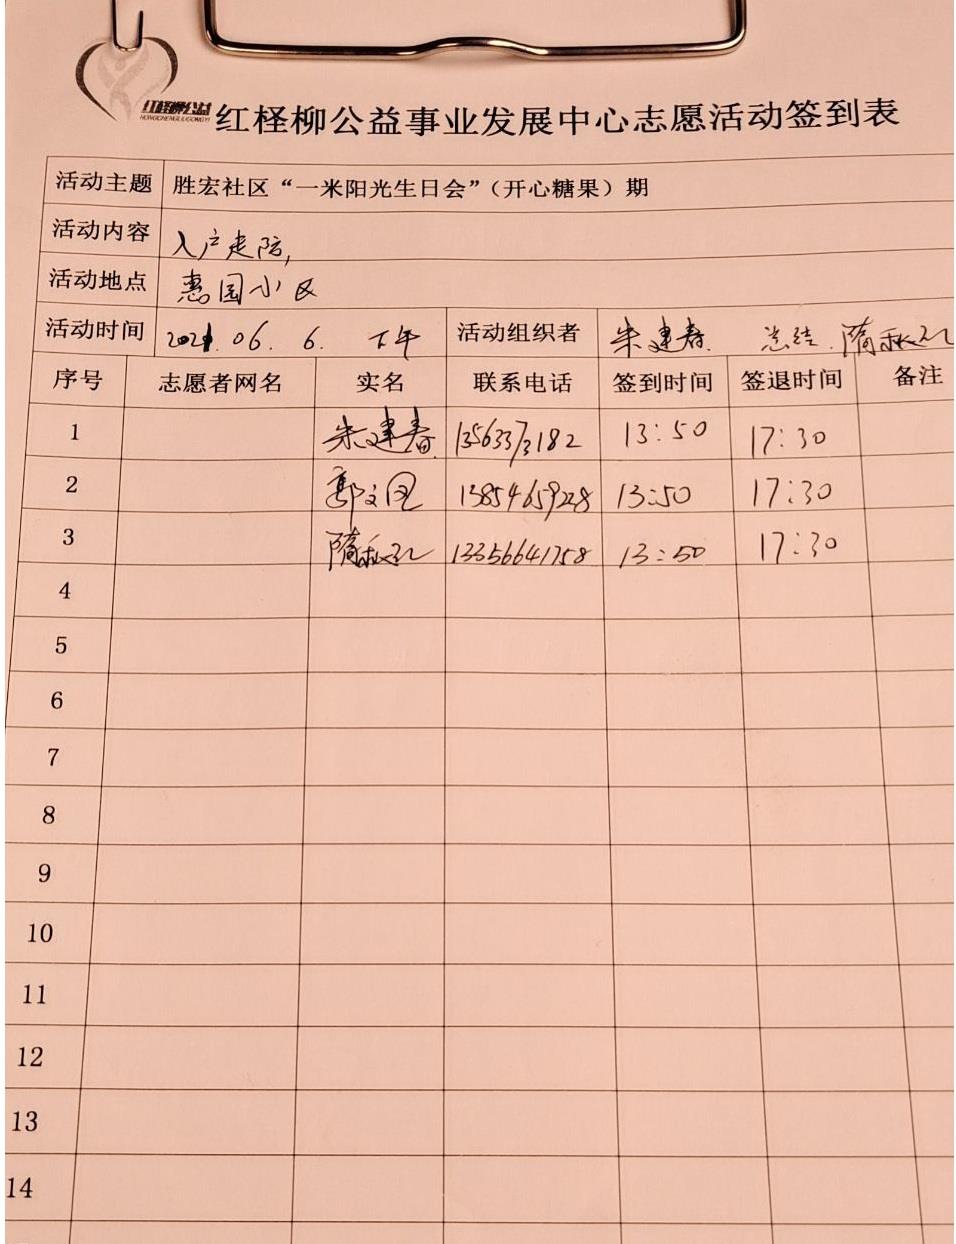 红柽柳公益
HONGCHENGLIUGONGYI
红柽柳公益事业发展中心志愿活动签到表
活动主题 胜宏社区“一米阳光生日会”（开心糖果）期
活动内容 入户走访,
活动地点 惠园小区
活动时间 2021.06.6. 下午 活动组织者 朱建春. 总结.隋秋
序号 志愿者网名 实名 联系电话 签到时间 签退时间 备注
1 朱建春 13563373182 13:50 17:30
2 郭文 13854659228 13:50 17:30
3 隋秋 13356641758 13:50 17:30
4
5
6
7
8
9
10
11
12
13
14